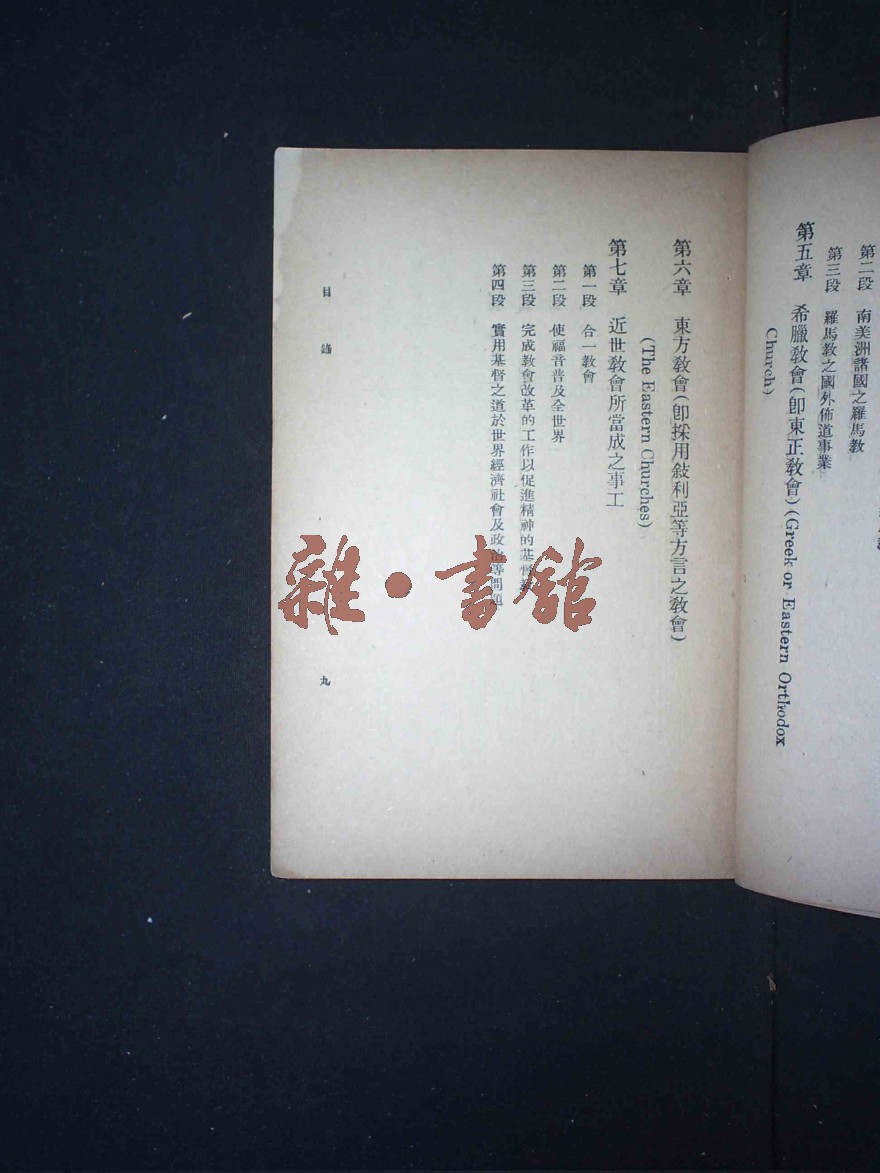 第二段 南美洲諸國之羅馬教
第三段 羅馬教之國外佈道事業
第五章 希臘教會(卽東正教會)(Greek or Eastern Orthodox
Church)
第六章 東方教會(卽採用敍利亞等方言之教會)
(The Eastern Churches)
第七章 近世教會所當成之事工
第一段 合一教會
第二段 使福音普及全世界
第三段 完成教會改革的工作以促進精神的基督教
第四段 實用基督之道於世界經濟社會及政治等問題
目錄
九
雜·書館